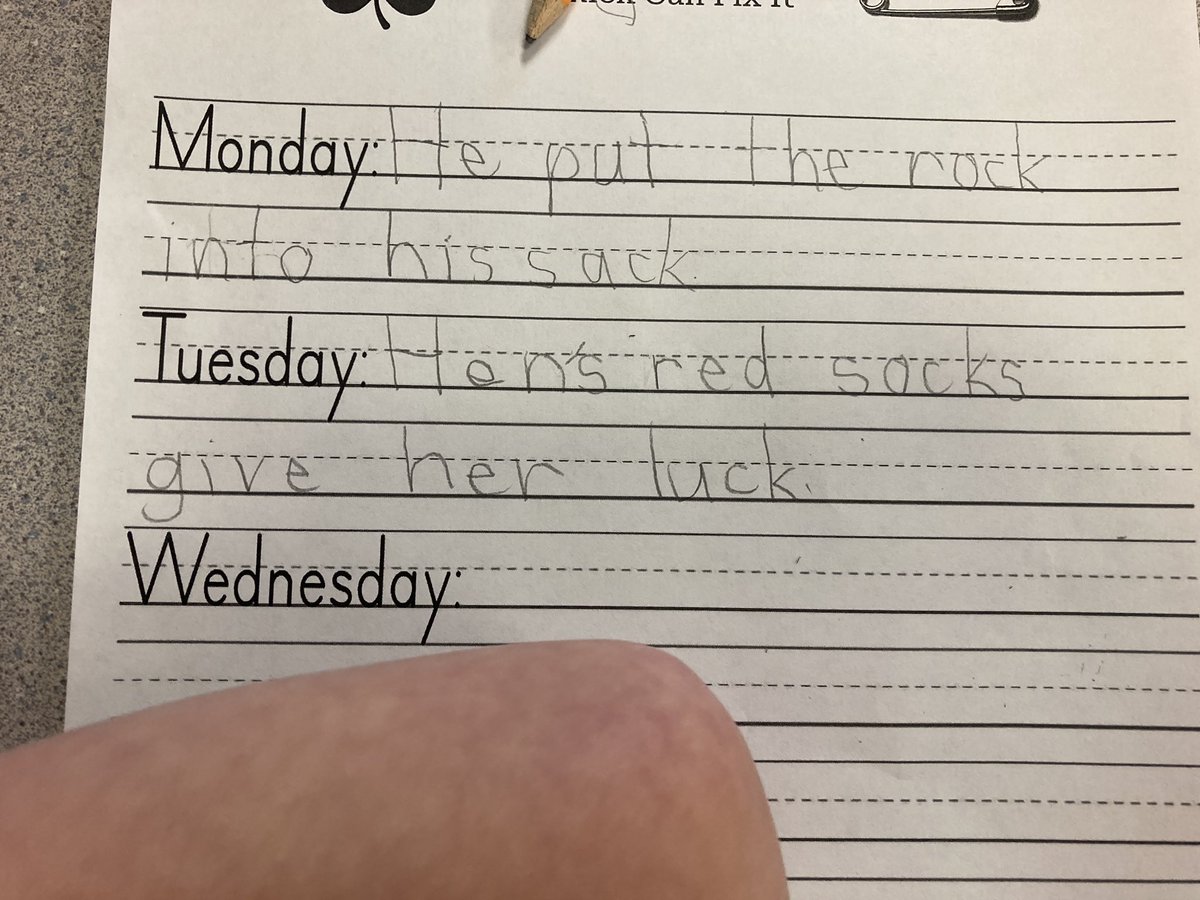 Can Fix It
Monday: He put the rock
into his sack.
Tuesday: Hen's red socks
give her luck.
Wednesday: